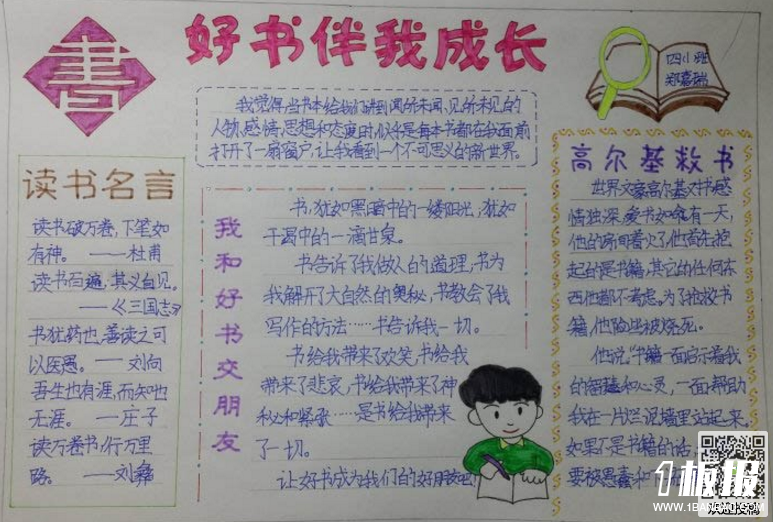 書
好书伴我成长
四(1)班
郑嘉瑞
我觉得,当书本给我们讲到闻所未闻、见所未见的
人物、感情、思想和态度时,似乎是每本书都在我面前
打开了一扇窗户,让我看到一个不可思义的新世界。
读书名言
读书破万卷,下笔如
有神。——杜甫
读书百遍,其义自见。
——《三国志》
书犹药也,善读之可
以医愚。——刘向
吾生也有涯,而知也
无涯。——庄子
读万卷书,行万里
路。——刘彝
我和好书交朋友
书,犹如黑暗中的一缕阳光,犹如
干渴中的一滴甘泉。
书告诉了我做人的道理,书为
我解开了大自然的奥秘,书教会了我
写作的方法……书告诉我一切。
书给我带来了欢笑,书给我
带来了悲哀,书给我带来了神
秘和紧张……是书给我带来
了一切。
让好书成为我们的好朋友吧!
高尔基救书
世界文豪高尔基对书感
情独深,爱书如命。有一天,
他的房间着火了,他首先抱
起的是书籍,其它的任何东
西他都不考虑。为了抢救书
籍,他险些被烧死。
他说:“书籍一面启示着我
的智慧和心灵,一面帮助
我在一片烂泥塘里站起来,
如果不是书籍的话,
要被愚蠢和下
1板报
WWW.1BANBAO.COM
欢迎投稿